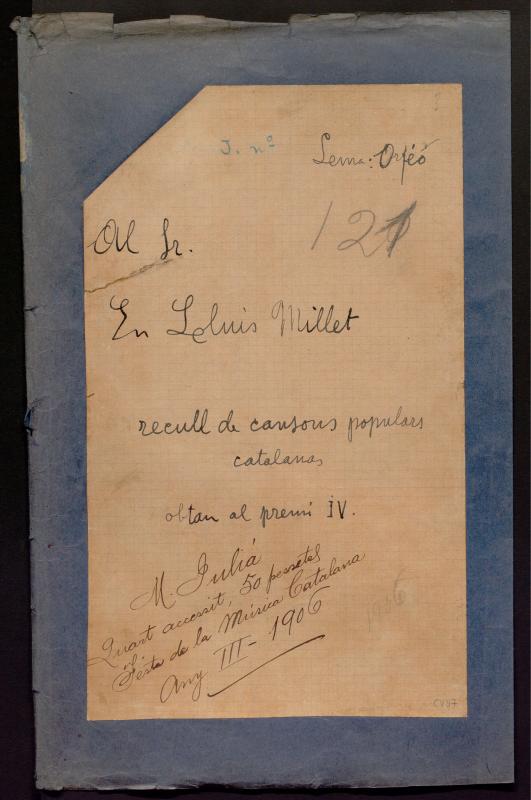 J. nº
Lema: Orfeó
121
Al Sr.
En Lluis Millet
recull de cansons populars
catalanas
obtan al premi IV.
M. Juliá
Quart accessit, 50 pessetes
Festa de la Música Catalana
Any III - 1906
1906